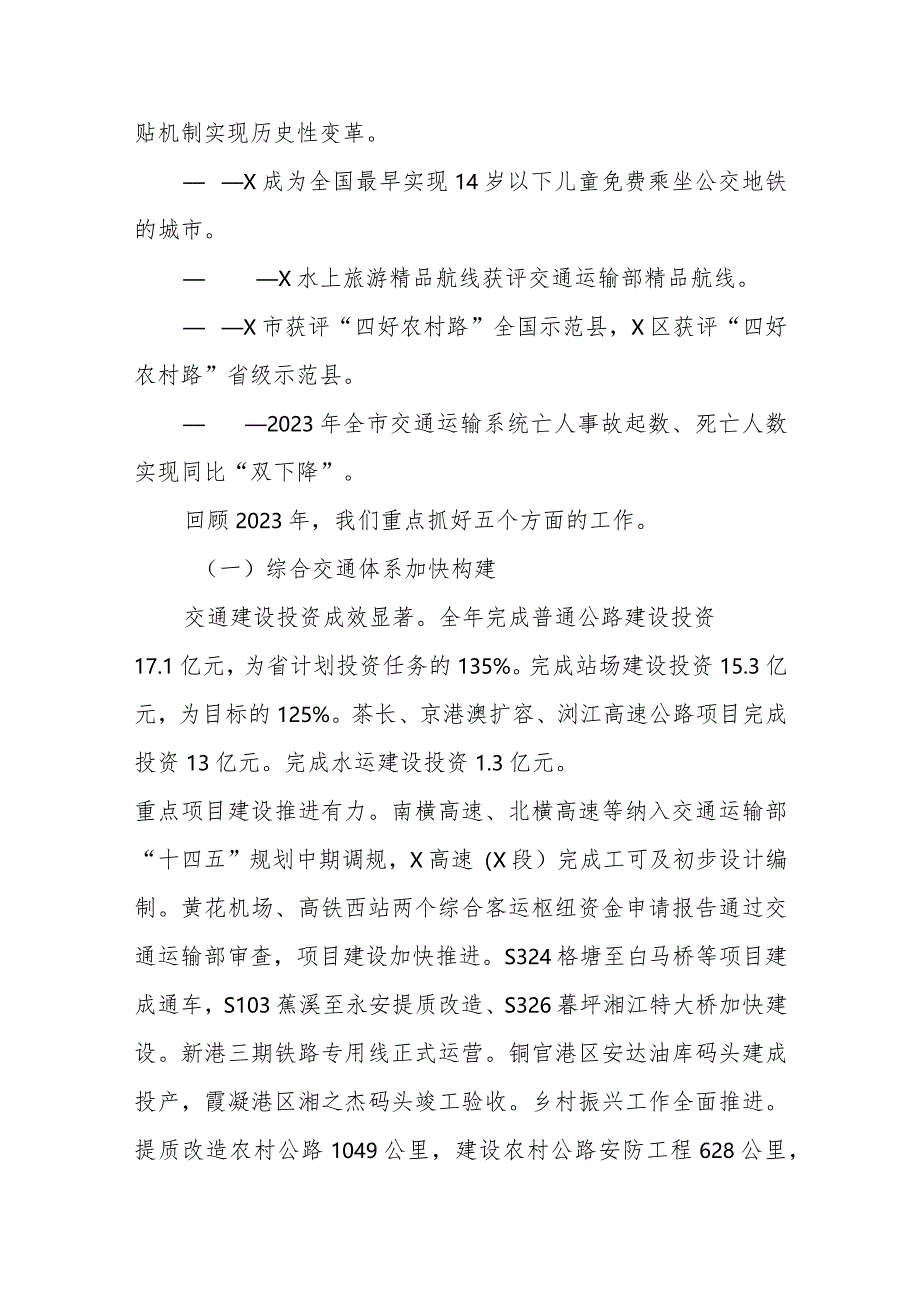 贴机制实现历史性变革。
— —X 成为全国最早实现 14 岁以下儿童免费乘坐公交地铁
的城市。
— —X 水上旅游精品航线获评交通运输部精品航线。
— —X 市获评“四好农村路”全国示范县，X 区获评“四好
农村路”省级示范县。
— —2023 年全市交通运输系统亡人事故起数、死亡人数
实现同比“双下降”。
回顾 2023 年，我们重点抓好五个方面的工作。
（一）综合交通体系加快构建
交通建设投资成效显著。全年完成普通公路建设投资
17.1 亿元，为省计划投资任务的 135%。完成站场建设投资 15.3 亿
元，为目标的 125%。茶长、京港澳扩容、浏江高速公路项目完成
投资 13 亿元。完成水运建设投资 1.3 亿元。
重点项目建设推进有力。南横高速、北横高速等纳入交通运输部
“十四五”规划中期调规，X 高速 (X 段）完成工可及初步设计编
制。黄花机场、高铁西站两个综合客运枢纽资金申请报告通过交
通运输部审查，项目建设加快推进。S324 格塘至白马桥等项目建
成通车，S103 蕉溪至永安提质改造、S326 暮坪湘江特大桥加快建
设。新港三期铁路专用线正式运营。铜官港区安达油库码头建成
投产，霞凝港区湘之杰码头竣工验收。乡村振兴工作全面推进。
提质改造农村公路 1049 公里，建设农村公路安防工程 628 公里，